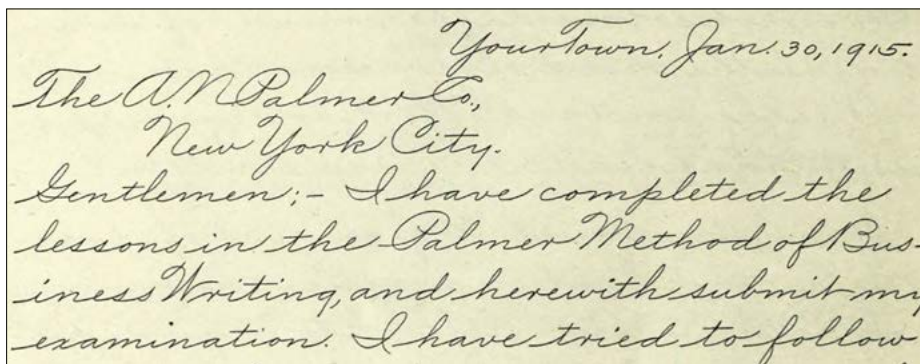 Your Town, Jan. 30, 1915.
The A.N. Palmer Co.,
New York City.
Gentlemen:- I have completed the
lessons in the Palmer Method of Bus-
iness Writing, and herewith submit my
examination. I have tried to follow